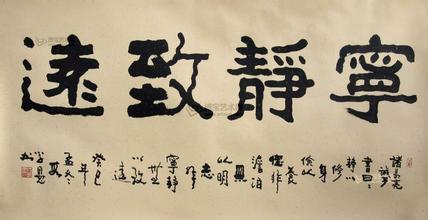 寧靜致遠
諸葛亮
誡子
書曰
静以
修
身
儉以
養
德非
澹泊
無
以明
志
非
寧静
無
以致
遠
癸巳
年
孟冬